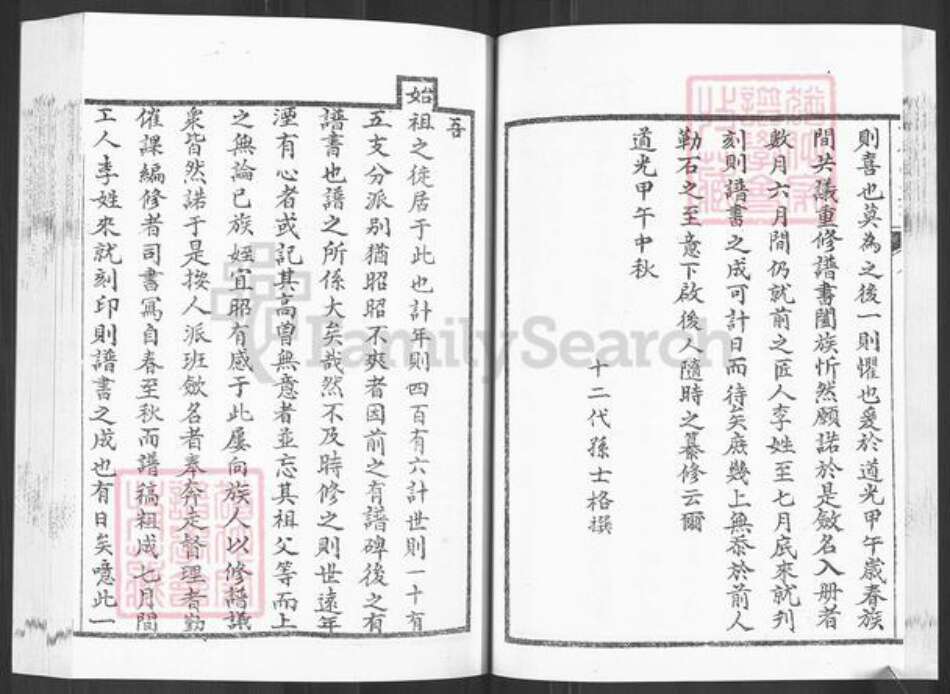 則喜也莫為之後一則懼也爰於道光甲午歲春族
間共議重修譜書闔族忻然願諾於是斂名入册者
數月六月間仍就前之匠人李姓至七月底來就刋
刻則譜書之成可計日而待矣庶幾上無忝於前人
勒石之至意下啟後人隨時之纂修云爾
道光甲午中秋
十二代孫士格撰
吾
始祖之徙居于此也計年則四百有六計世則一十有
五支分派別猶昭昭不爽者因前之有譜碑後之有
譜書也譜之所係大矣哉然不及時修之則世遠年
湮有心者或記其高曾無意者並忘其祖父等而上
之無論已族姪宜昭有感于此屢向族人以修譜議
衆皆然諾于是挨人派班斂名者奉奔走督理者勤
催課編修者司書寫自春至秋而譜稿粗成七月間
工人李姓來就刻印則譜書之成也有日矣噫此一
FamilySearch